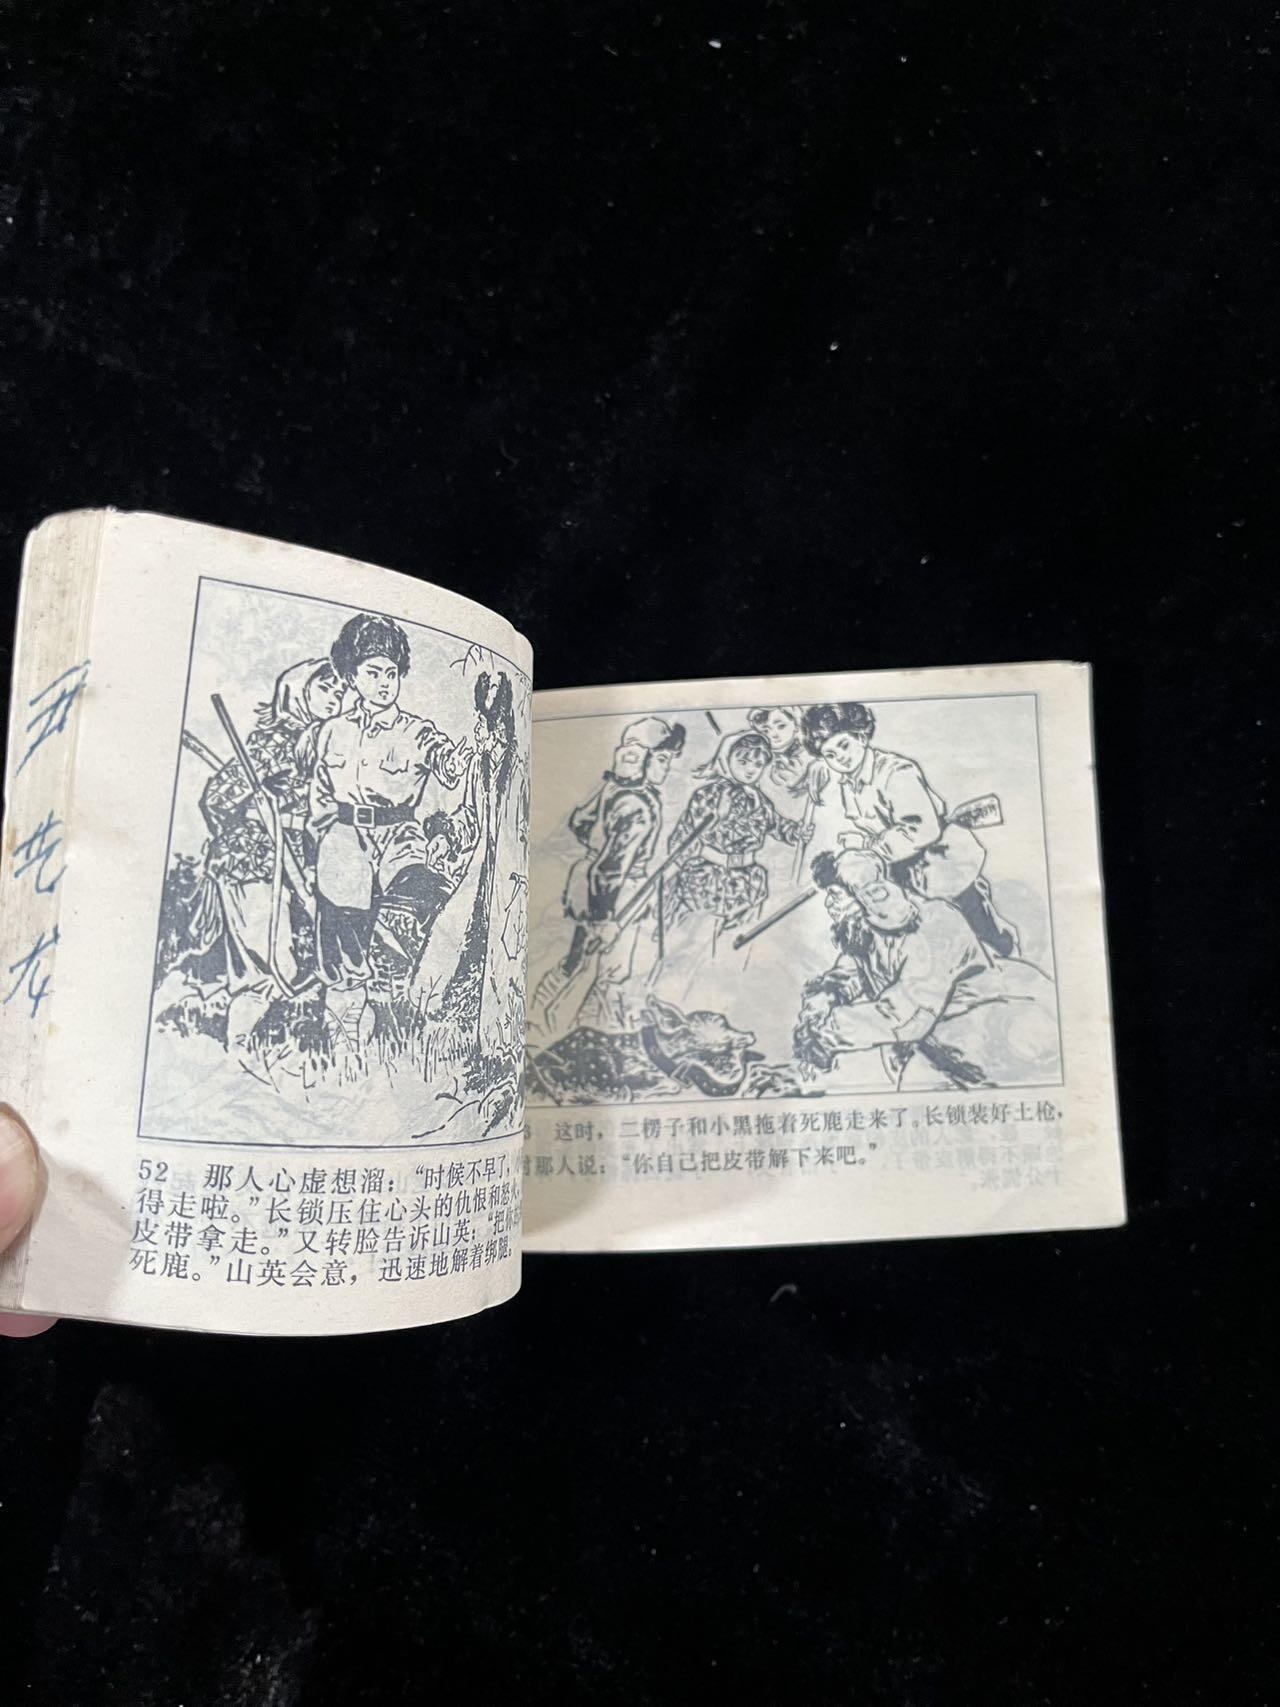 52 那人心虚想溜：“时候不早了，
得走啦。”长锁压住心头的仇恨和怒火，
皮带拿走。”又转脸告诉山英：“把你
死鹿。”山英会意，迅速地解着绑腿。
这时，二楞子和小黑拖着死鹿走来了。长锁装好土枪，
对那人说：“你自己把皮带解下来吧。”